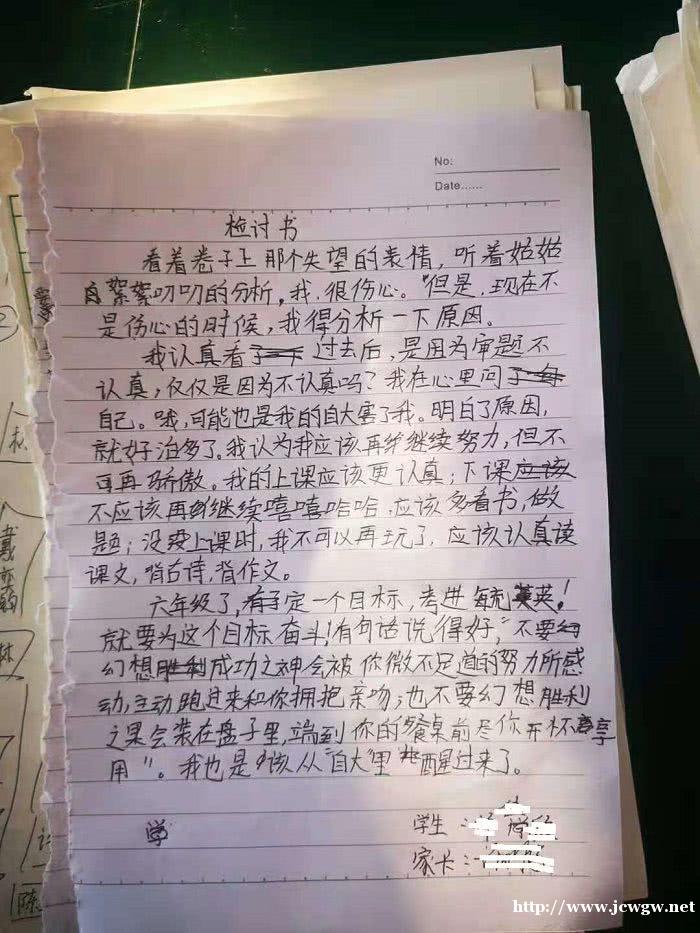 No:
Date......
检讨书
看着卷子上那个失望的表情，听着姑姑
絮絮叨叨的分析，我很伤心。但是，现在不
是伤心的时候，我得分析一下原因。
我认真看过去后，是因为审题不
认真，仅仅是因为不认真吗？我在心里问
自己。哦，可能也是我的自大害了我。明白了原因，
就好治多了。我认为我应该再继续努力，但不
可再骄傲。我的上课应该更认真；下课
不应该再继续嘻嘻哈哈，应该多看书，做
题；没上课时，我不可以再玩了，应该认真读
课文，背古诗，背作文。
六年级了，定一个目标，考进英！
就要为这个目标奋斗！有句话说得好，“不要
幻想成功之神会被你微不足道的努力所感
动，主动跑过来和你拥抱亲吻；也不要幻想胜利
之果会装在盘子里，端到你的餐桌前尽你开杯享
用”。我也是该从“自大”里醒过来了。
学
学生：
家长：
http://www.jcwgw.net